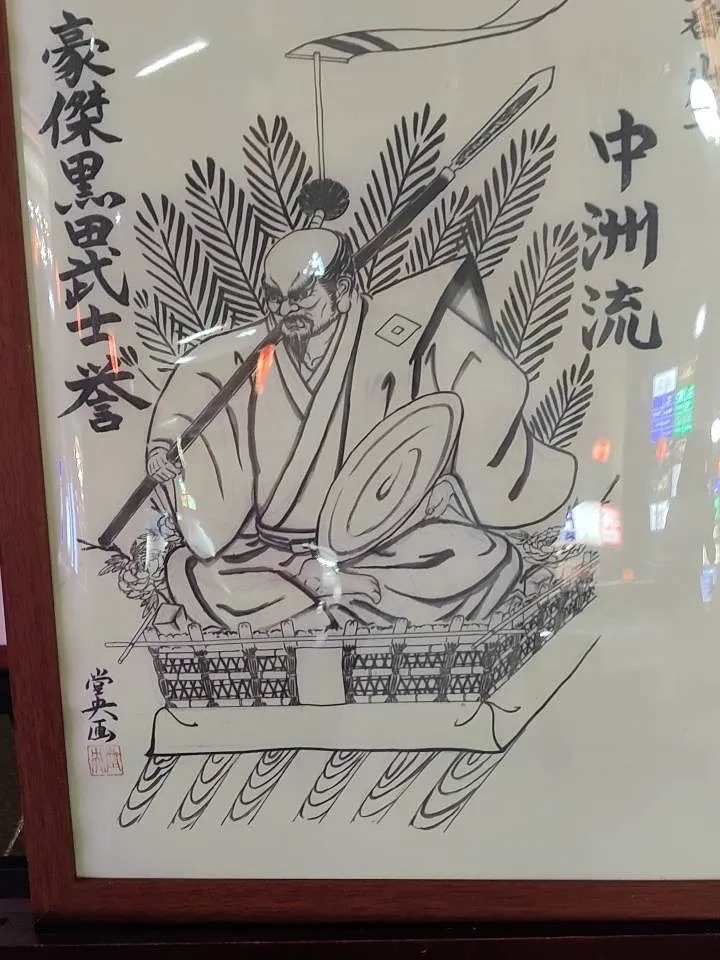 中洲流
豪傑黒田武士誉
堂英画